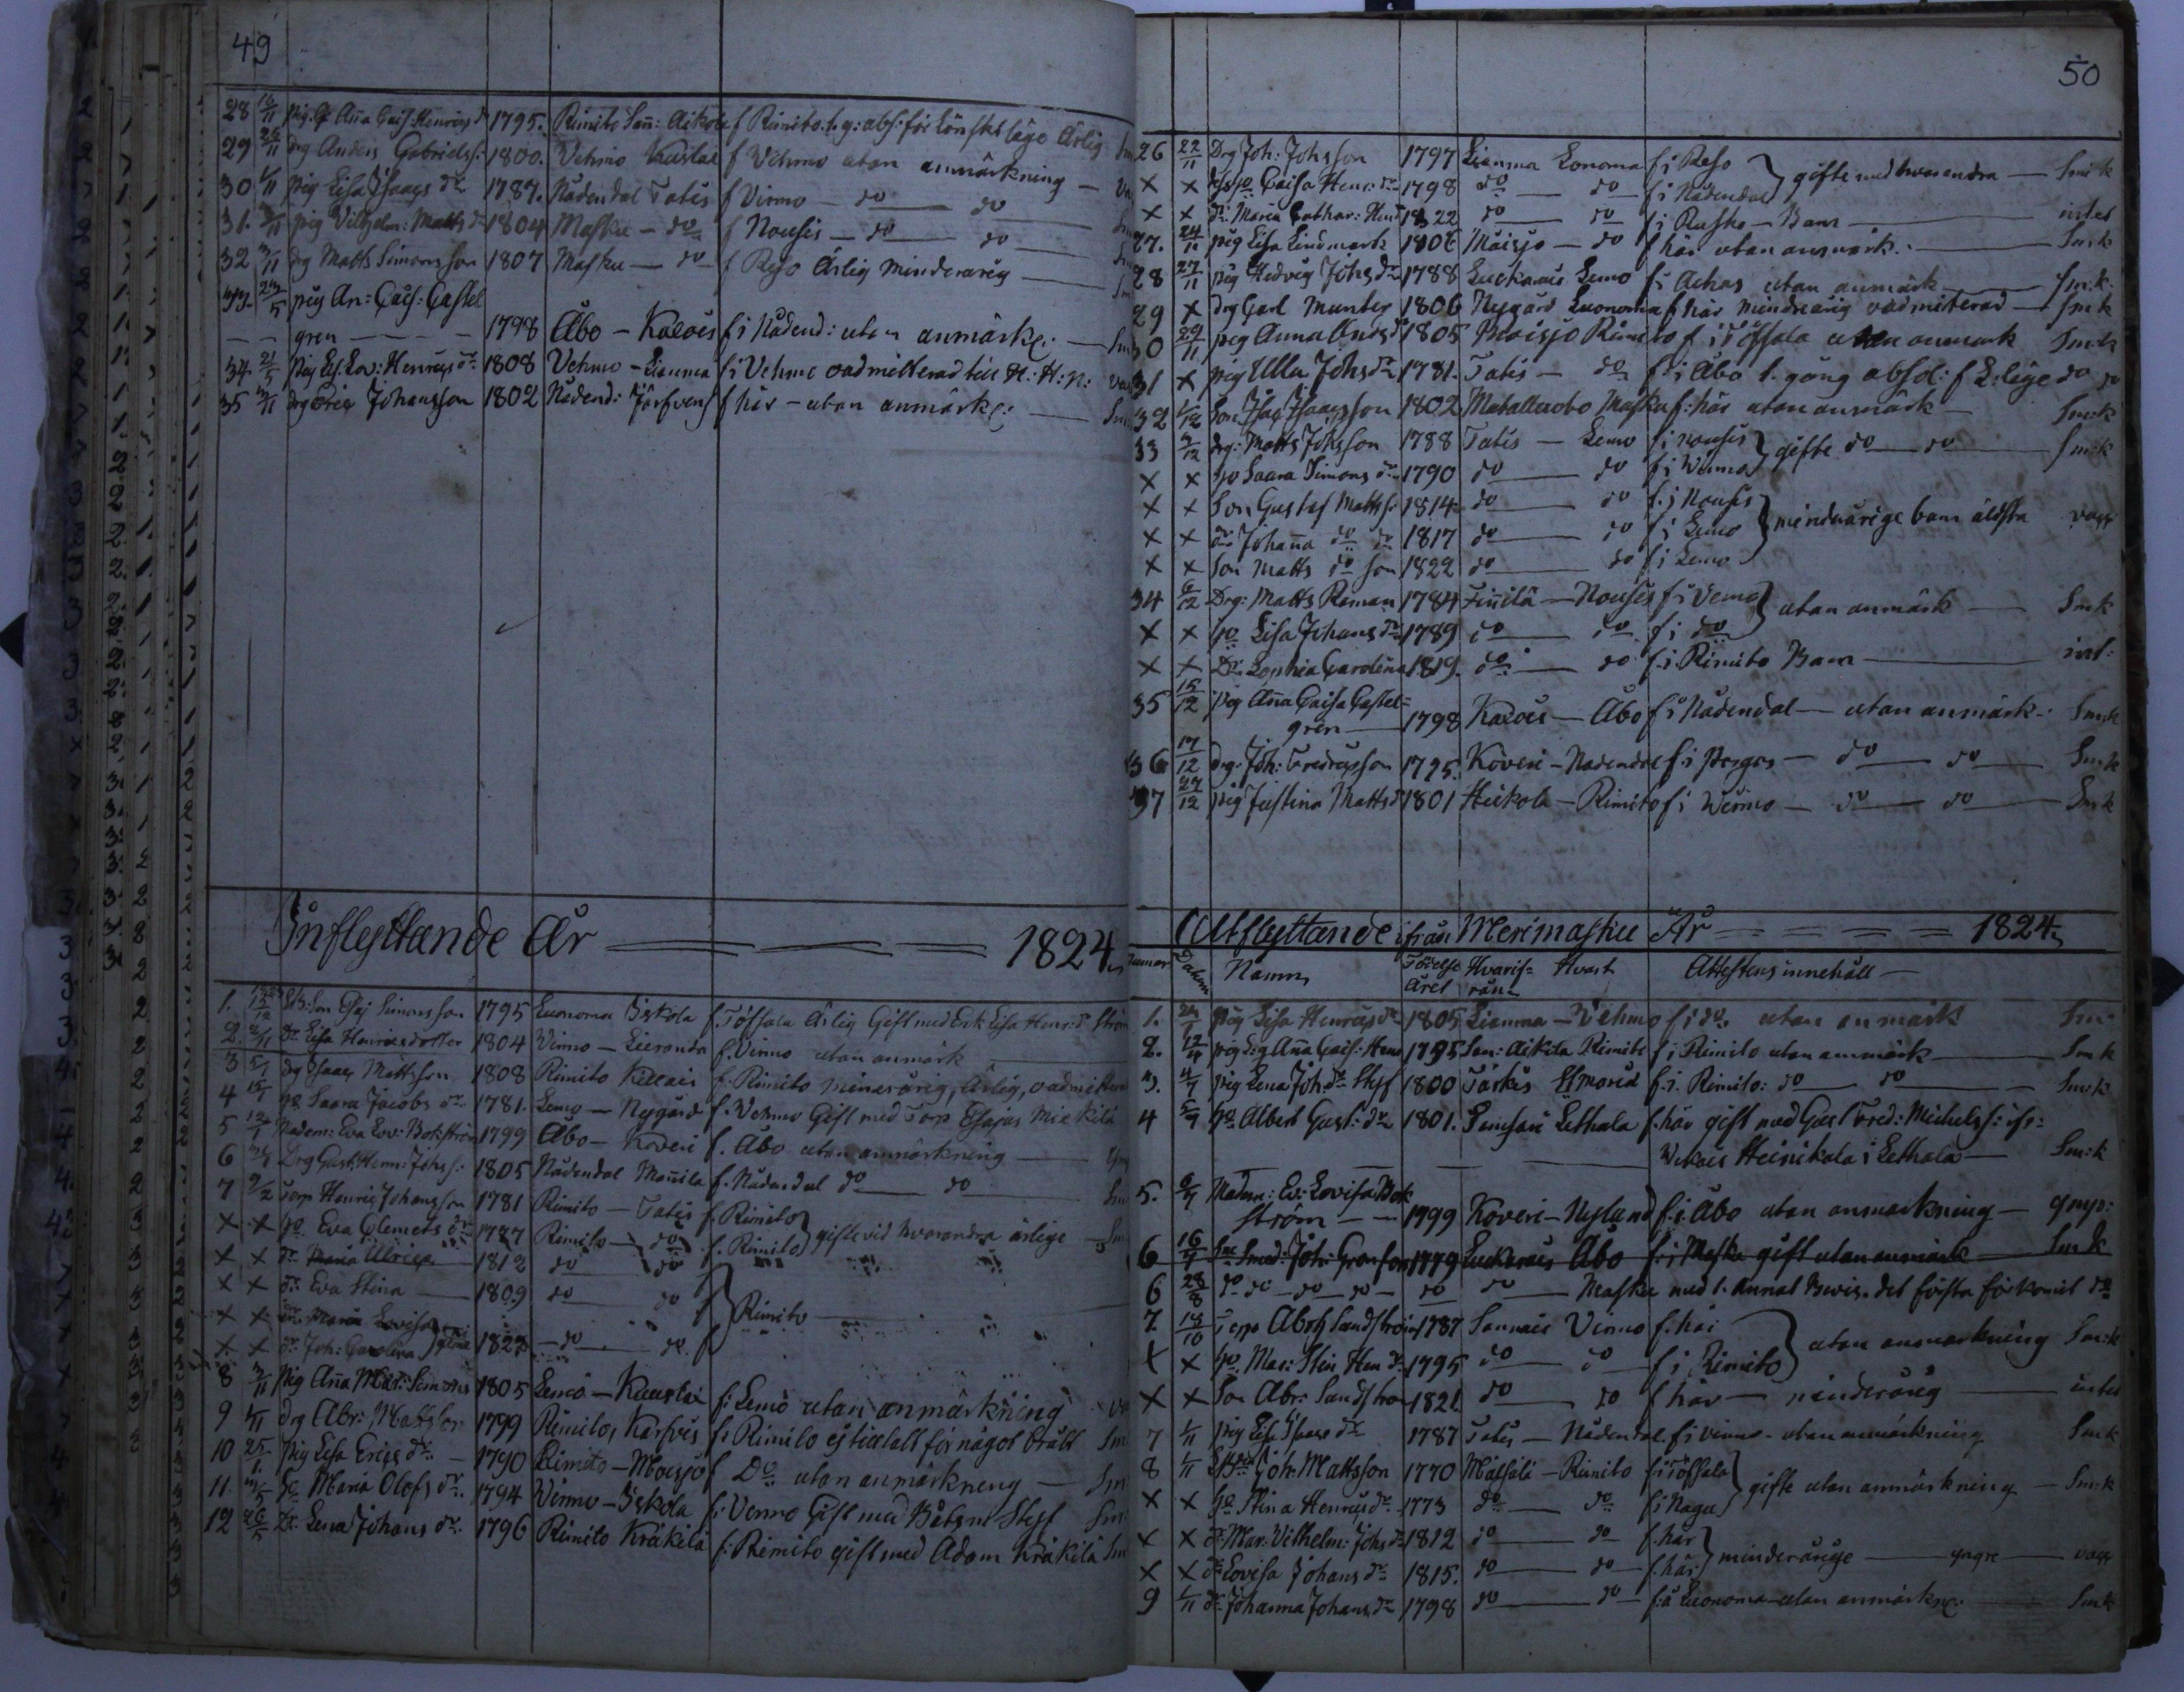 49
28 10/11 pig. Q. Aña Cais: Henrics dr 1795. Rimito San: Aikola f Rimito. 1. g: abs: för Lönskt läge Ärlig Sm
29 26/11 drg Anders Gabrielss: 1800. Vehmo Kustal f Vehmo utan anmärkning
30 1/11 pig Lisa Isaacs dr 1787. Nådendal Tatis f Virmo do do
31. 3/11 pig Vilhelm: Matts dr 1804 Masku do f Nousis do do
32 3/11 drg Matts Simonsson 1807 Masku do f Reso Ärlig minderårig Sm
33. 23/5 pig An: Cajs: Castel
gren 1798 Åbo - Kaxois f i Nådend: utan anmärkg: Sm
34. 21/5 pig Lis. Lov: Henrics dr 1808 Vehmo - Lianma f i Vehmo oadmitterad till H: H: N:
35 3/11 drg Eric Johansson 1802 Nådend: f här - utan anmärkg: Sm
Inflyttande År 1824
1. 1823 15/12 Son Esaj Simonsson 1795 Luonoma Iskola f. Töfsala Ärlig Gift med Enk Lisa Henr: dr
2. 2/11 Dr. Lisa Henricsdotter 1804 Virmo - Lieranda f. Virmo utan anmärk
3 5/1 drg Isaac Mattsson 1808 Rimito Killais f. Rimito minderårig, Ärlig, oadmitterad
4 15/1 ho Saara Jacobs dr 1781. Lemo - Nygård f. Vehmo Gift med Torp Esajas Miekilä
5 12/1 Madem: Eva Lov: Bokström 1799 Åbo - Koveri f. Åbo utan anmärkning
6 Drg Gust. Herm: Johss: 1805 Nådendal Mañila f. Nådendal do do Sm
7 9/2 Torp Henric Johansson 1781 Rimito - Tatis f. Rimito gifte vid hvarandra ärlige
x x ho Eva Clemets dr 1787 Rimito - do f. Rimito
x x dr Maria Ulrica 1812 do do
x x dr Eva Stina 1809 do do f Rimito
x x dr Maria Lovisa
x x dr Joh: Carolina 1823 do do f
8 3/11 Pig Aña Mar: Simons 1805 Lemo - Kuustai f: Lemo utan anmärkning
9 1/11 drg Abr: Mattsson 1799 Rimito, Karfvis f: Rimito ej tilltalt för något brått Sm
10 25/1. pig Lisa Erics dr 1790 Rimito - Moisjo f Do utan anmärkning Sm
11. ho Maria Olofs dr. 1794 Virmo - Iskola f: Virmo Gift med Båtsm Styf Sm
12 26/5 Dr. Lena Johans dr. 1796 Rimito Kräkilä f: Rimito gift med Adam Kräkilä Sm
50
26 22/11 Drg Joh: Johsson 1797 Lianma Lonoma f i Reso gifte med hvarandra Sm:k
x x ho Caisa Henr: dr 1798 do do f i Nådendal
x x dr. Maria Cathar: Hen 1822 do do f i Rusko - Barn intet
27. 24/11 pig Lisa Lindmark 1806 Moisjo - do f här utan anmärk. Sm:k
28 27/11 pig Hedvig Johs dr 1788 Luckarais Lemo f: i Achas utan anmärk Sm:k
29 x drg Carl Munter 1806 Nygård Luonoma f här minderårig oadmitterad Sm:k
30 29/11 pig Anna Ands dr 1805 Moisjo Rimito f i Töfsala utan anmärk Sm:k
31 x pig Ulla Johs dr 1781. Tatis - do f: i Åbo 1. gång absol: f L: läge do do
32 1/12 Son Isac Isaacsson 1802 Mataluoto Masku f: här utan anmärk Sm:k
33 4/12 drg: Matts Johsson 1788 Tatis - Lemo f i Nousis gifte do do Sm:k
x x ho Saara Simons dr 1790 do do f i Virmo
x x Son Gustaf Mattss: 1814 do do f. i Nousis minderårige barn äldsta
x x dr Johaña do dr 1817 do do f i Lemo
x x Son Matts do son 1822 do do f i Lemo
34 6/12 Drg: Matts Roman 1784 Fiñilä - Nousis f i Vemo utan anmärk Sm:k
x x ho Lisa Johans dr 1789 do do f i do
x x Dr. Sophia Carolina 1819. do do f. i Rimito Barn int:
35 15/12 pig Aña Caisa Castel=
gren 1798 Kaxois - Åbo f i Nådendal utan anmärk. Sm:k
36 17/12 drg: Joh: Fredricsson 1795. Koveri - Nådendal f: i Pargas do do Sm:k
37 27/12 pig Justina Matts dr 1801 Heikola - Rimito f i Virmo do do Sm:k
Utflyttande ifrån Merimasku År 1824
Numer Datum Namn Födelse Året Hvarif= rån Hvart Attestens innehåll
1. 24/1 pig Lisa Henrics dr 1805 Lianma - Vehmo f i do utan anmärk Sm:
2. 12/4 pig Q: g Aña Cais: Henr 1795 San: Aikola Rimito f i Rimito utan anmärk Sm k
3. 4/7 pig Lena Joh. dr Styf 1800 Tärkis St Maria f. i. Rimito: do do Sm:k
4 5/9 ho Albert Gust: dr 1801. Lethala f. här gift med Gust Fred: Michelss: ifr:
Heinikala i Lethala Sm:k
5. 6/9 Madem: Ev: Lovisa Bok
ström 1799 Koveri - Nyland f. i. Åbo utan anmärkning
6 16/9 Smed: Joh: Granfors 1779 Luckarais Åbo f. i Masku gift utan anmärk Sm k
6 28/8 do do do do do do Masku med 1. annat Bevis. det första förkomit do
7 14/10 Torp Abrh Sandström 1787 Sannais Virmo f. här utan anmärkning Sm:k
x x ho Mar: Stin Hen dr 1795 do do f i Rimito
x x Son Abr: Sandström 1821. do do f här minderårig intet
7 1/11 pig Lisa Isaacs dr 1787 Tatis - Nådendal f i Virmo - utan anmärkning Sm:k
8 1/11 Joh. Mattsson 1770 Mälsälä - Rimito f: i Töfsala gifte utan anmärkning Sm:k
x x ho Stina Henrics dr 1773 do do f i Nagu
x x dr Mar. Vilhelm: Johs dr 1812 do do f. här minderårige yngre
x x dr Lovisa Johans dr 1815. do do f. här
9 1/11 dr Johanna Johans dr 1798 do do f. å Luonoma utan anmärkng. Sm:k